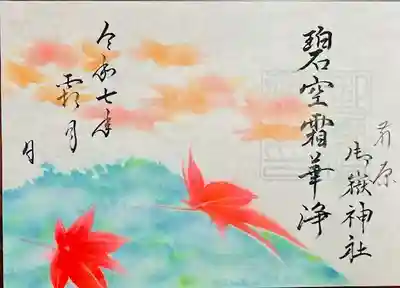 前原
御嶽神社
碧空霜華浄
令和七年
霜月
日